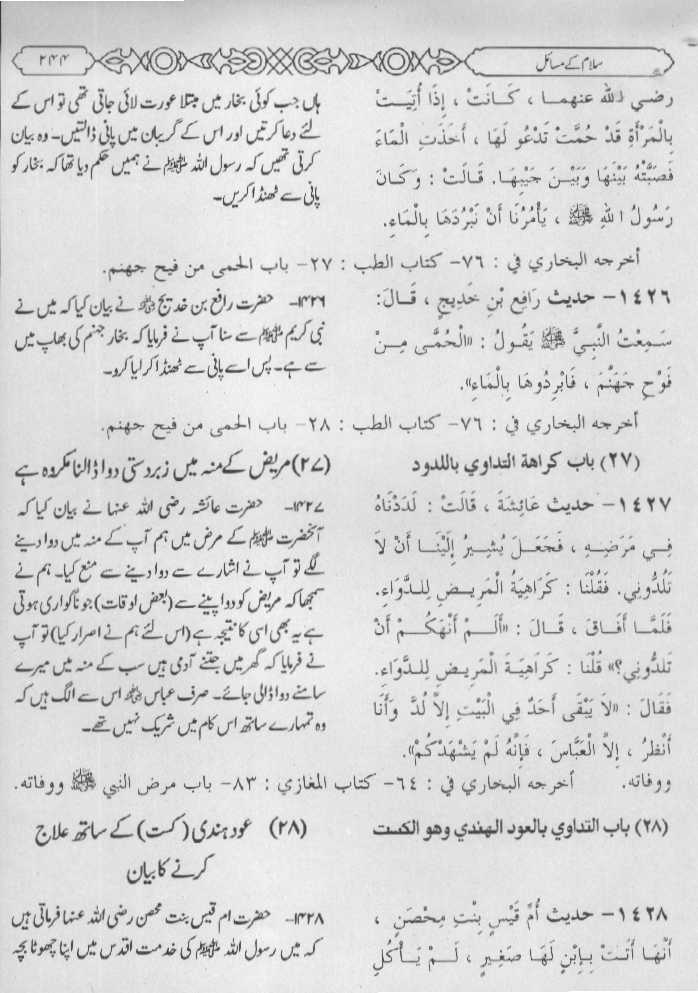 سلام کے مسائل
۲۴۴
رضي الله عنهما ، كَانَتْ ، إِذَا أُتِيَتْ
بِالْمَرْأَةِ قَدْ حُمَّتْ تَدْعُو لَهَا ، أَخَذَتِ الْمَاءَ
فَصَبَّتْهُ بَيْنَهَا وَبَيْنَ جَيْبِهَا. قَالَتْ : وَكَانَ
رَسُولُ اللهِ ﷺ ، يَأْمُرُنَا أَنْ نَبْرُدَهَا بِالْمَاءِ.
ہاں جب کوئی بخار میں مبتلا عورت لائی جاتی تھی تو اس کے
لئے دعا کرتیں اور اس کے گریبان میں پانی ڈالتیں۔ وہ بیان
کرتی تھیں کہ رسول اللہ ﷺ نے ہمیں حکم دیا تھا کہ بخار کو
پانی سے ٹھنڈا کریں۔
أخرجه البخاري في : ٧٦- كتاب الطب : ٢٧- باب الحمى من فيح جهنم.
١٤٢٦- حديث رَافِعِ بْنِ خَدِيجٍ ، قَالَ:
سَمِعْتُ النَّبِيَّ ﷺ يَقُولُ : «الْحُمَّى مِنْ
فَوْحِ جَهَنَّمَ ، فَابْرِدُوهَا بِالْمَاءِ».
۱۴۲۶- حضرت رافع بن خدیج ؓ نے بیان کیا کہ میں نے
نبی کریم ﷺ سے سنا آپ نے فرمایا کہ بخار جہنم کی بھاپ میں
سے ہے۔ پس اسے پانی سے ٹھنڈا کر لیا کرو۔
أخرجه البخاري في : ٧٦- كتاب الطب : ٢٨- باب الحمى من فيح جهنم.
(٢٧) باب كراهة التداوي باللدود
(۲۷) مریض کے منہ میں زبردستی دوا ڈالنا مکروہ ہے
١٤٢٧- حديث عَائِشَةَ ، قَالَتْ : لَدَدْنَاهُ
فِي مَرَضِهِ ، فَجَعَلَ يُشِيرُ إِلَيْنَا أَنْ لَا
تَلُدُّونِي. فَقُلْنَا : كَرَاهِيَةُ الْمَرِيضِ لِلدَّوَاءِ.
فَلَمَّا أَفَاقَ ، قَالَ : «أَلَمْ أَنْهَكُمْ أَنْ
تَلُدُّونِي؟» قُلْنَا : كَرَاهِيَةَ الْمَرِيضِ لِلدَّوَاءِ.
فَقَالَ : «لَا يَبْقَى أَحَدٌ فِي الْبَيْتِ إِلاَّ لُدَّ وَأَنَا
أَنْظُرُ ، إِلاَّ الْعَبَّاسَ ، فَإِنَّهُ لَمْ يَشْهَدْكُمْ».
۱۴۲۷- حضرت عائشہ رضی اللہ عنہا نے بیان کیا کہ
آنحضرت ﷺ کے مرض میں ہم آپ کے منہ میں دوا دینے
لگے تو آپ نے اشارے سے دوا دینے سے منع کیا۔ ہم نے
سمجھا کہ مریض کو دوا پینے سے (بعض اوقات) جو ناگواری ہوتی
ہے یہ بھی اسی کا نتیجہ ہے (اس لئے ہم نے اصرار کیا) تو آپ
نے فرمایا کہ گھر میں جتنے آدمی ہیں سب کے منہ میں میرے
سامنے دوا ڈالی جائے۔ صرف عباس ؓ اس سے الگ ہیں کہ
وہ تمہارے ساتھ اس کام میں شریک نہیں تھے۔
ووفاته. أخرجه البخاري في : ٦٤- كتاب المغازي : ٨٣- باب مرض النبي ﷺ ووفاته.
(٢٨) باب التداوي بالعود الهندي وهو الكست
(۲۸) عود ہندی (کست) کے ساتھ علاج
کرنے کا بیان
١٤٢٨- حديث أُمِّ قَيْسٍ بِنْتِ مِحْصَنٍ ،
أَنَّهَا أَتَتْ بِابْنٍ لَهَا صَغِيرٍ ، لَمْ يَأْكُلِ
۱۴۲۸- حضرت ام قیس بنت محصن رضی اللہ عنہا فرماتی ہیں
کہ میں رسول اللہ ﷺ کی خدمت اقدس میں اپنا چھوٹا بچہ